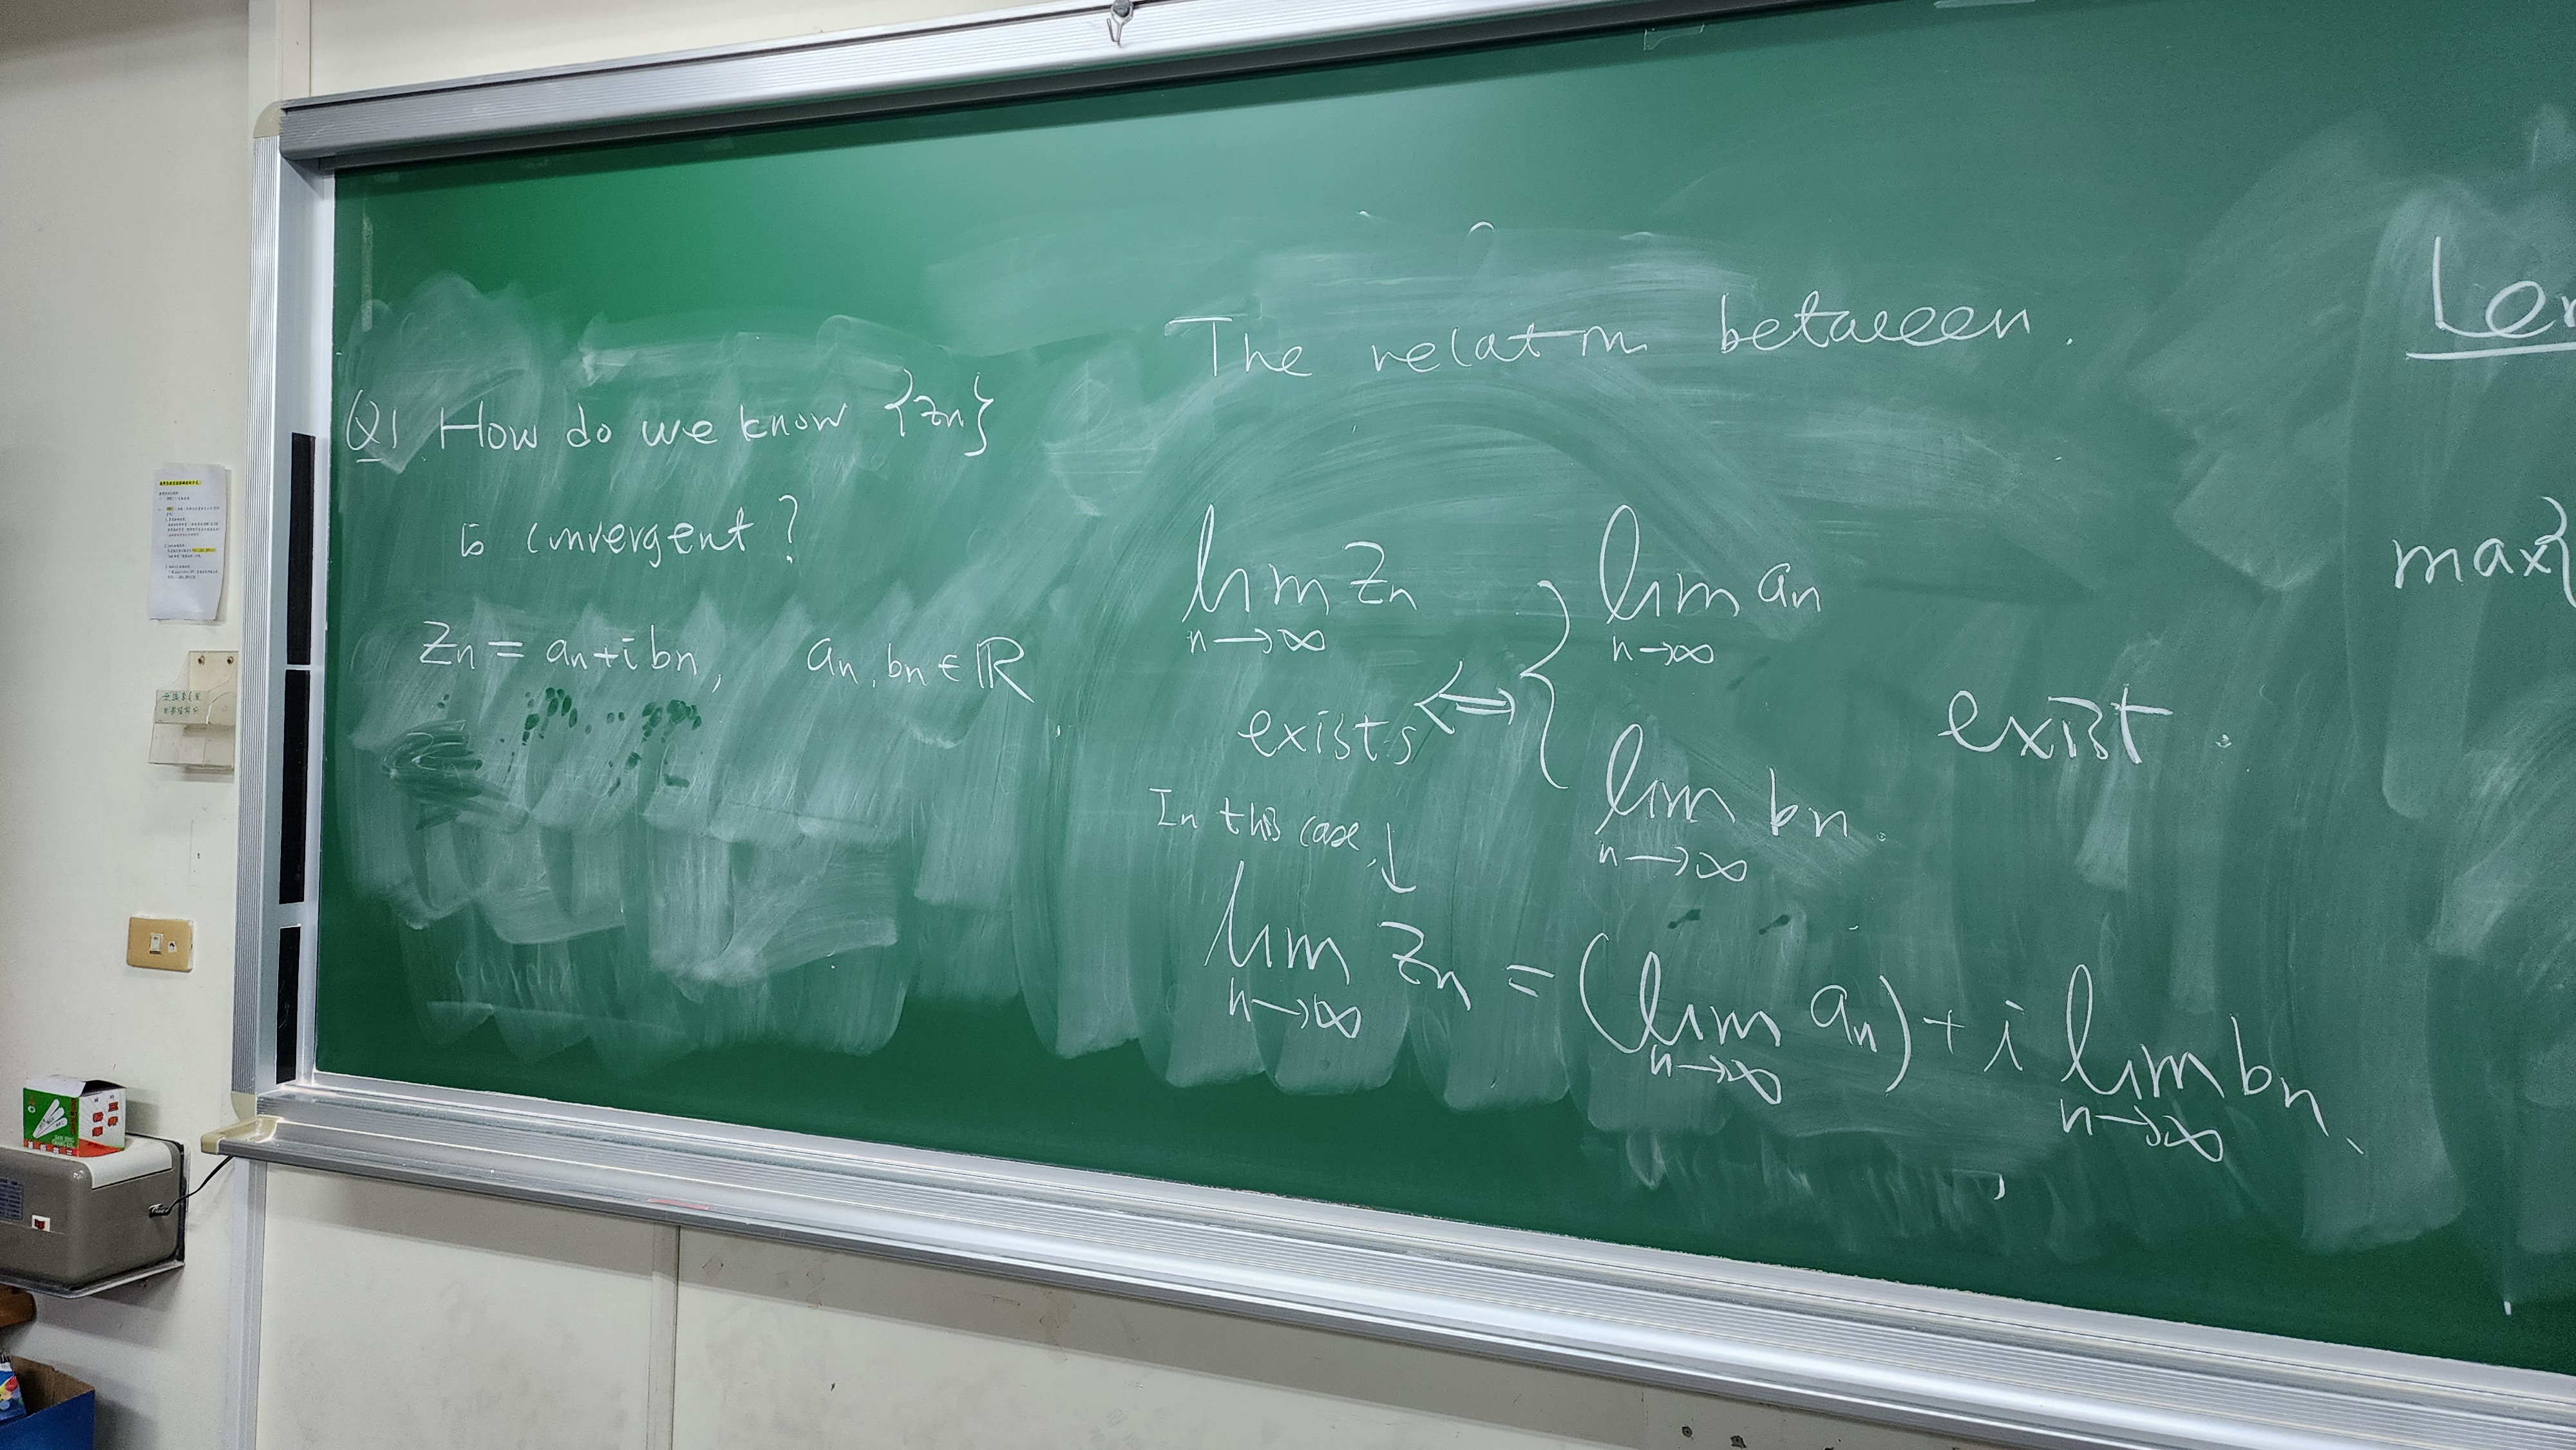 Q1 How do we know {zn}
is convergent?
zn = an + i bn, an, bn ∈ ℝ
The relation between.
lim zn
n→∞
exists
⟺
{
lim an
n→∞
lim bn.
n→∞
exist.
In this case, ↓
lim zn = (lim an) + i lim bn
n→∞ n→∞ n→∞
Lem
max{